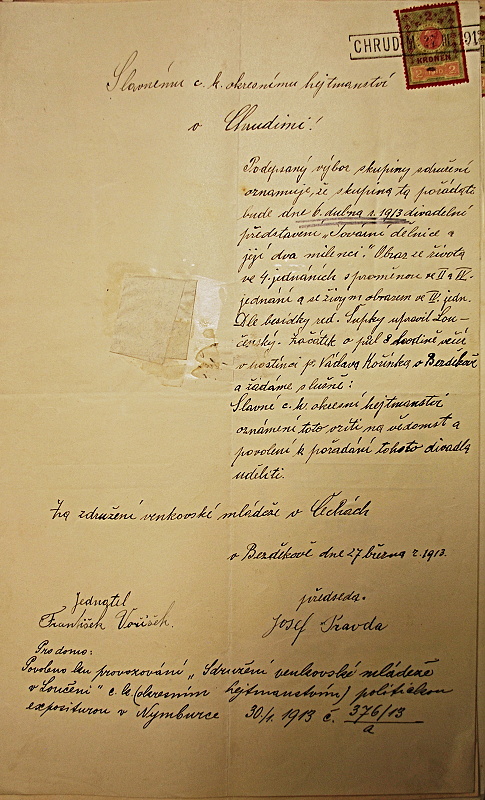 CHRUDIM 27 III 1913
2
KRONEN
2
Slavnému c. k. okresnímu hejtmanství
v Chrudimi!
Podepsaný výbor skupiny sdružení
oznamuje, že skupina ta pořádati
bude dne 6. dubna r. 1913 divadelní
představení „Tovární dělnice a
její dva milenci." Obraz ze života
ve 4 jednáních s proměnou ve II a IV.
jednání a se živým obrazem ve IV. jedn.
Dle besídky red. Šupky upravil Lou-
čenský. Začátek o půl 8 hodině večer
v hostinci p. Václava Kořínka v Bezděkově
a žádáme slušně:
Slavné c. k. okresní hejtmanství
oznámení toto vzíti na vědomost a
povolení k pořádání tohoto divadla
uděliti.
Za združení venkovské mládeže v Čechách
v Bezděkově dne 27 března r. 1913.
Jednatel
předseda.
František Voříšek.
Josef Pravda
Pro domo:
Povoleno ku provozování „Sdružení venkovské mládeže
v Loučeni" c. k. (okresním hejtmanstvím) politickou
expositurou v Nymburce 30/1. 1913 č. 376/13
a